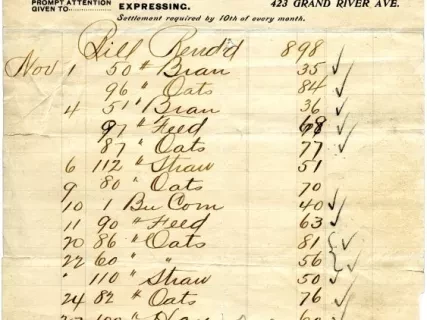 PROMPT ATTENTION
GIVEN TO
EXPRESSING.
423 GRAND RIVER AVE.
Settlement required by 10th of every month.
Bill Rend'd 898
Nov 1 50 # Bran 35 ✓
96 " Oats 84 ✓
4 51 " Bran 36 ✓
97 " Feed 68 ✓
87 " Oats 77 ✓
6 112 " Straw 51
9 80 " Oats 70
10 1 Bu Corn 40 ✓
11 90 # Feed 63 ✓
20 86 " Oats 81 ✓
22 60 " " 56 ✓
" 110 " Straw 50 ✓
24 82 " Oats 76 ✓